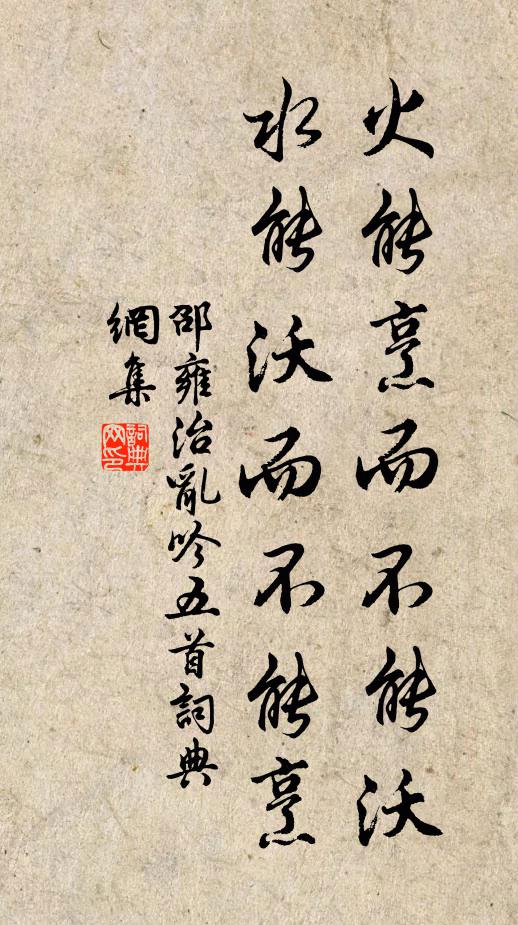 火能烹而不能沃
水能沃而不能烹
邵雍治亂吟五首詞典
網集
詞典
网印